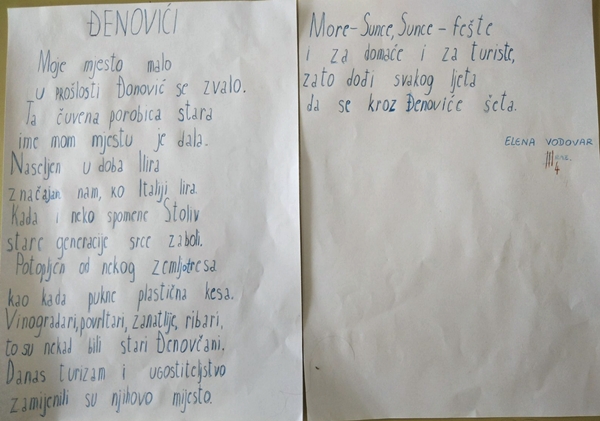 ĐENOVIĆI
Moje mjesto malo
u prošlosti Đonović se zvalo.
Ta čuvena porobica stara
ime mom mjestu je dala.
Naseljen u doba Ilira
značajan nam, ko Italiji lira.
Kada i neko spomene Stoliv
stare generacije srce zaboli.
Potopljen od nekog zemljotresa
kao kada pukne plastična kesa.
Vinogradari, povrltari, zanatlije, ribari,
to su nekad bili stari Đenovčani.
Danas turizam i ugostiteljstvo
zamijenili su njihovo mijesto.
More-Sunce, Sunce - fešte
i za domaće i za turiste,
zato dođi svakog ljeta
da se kroz Đenoviće šeta.
ELENA VODOVAR
III 4